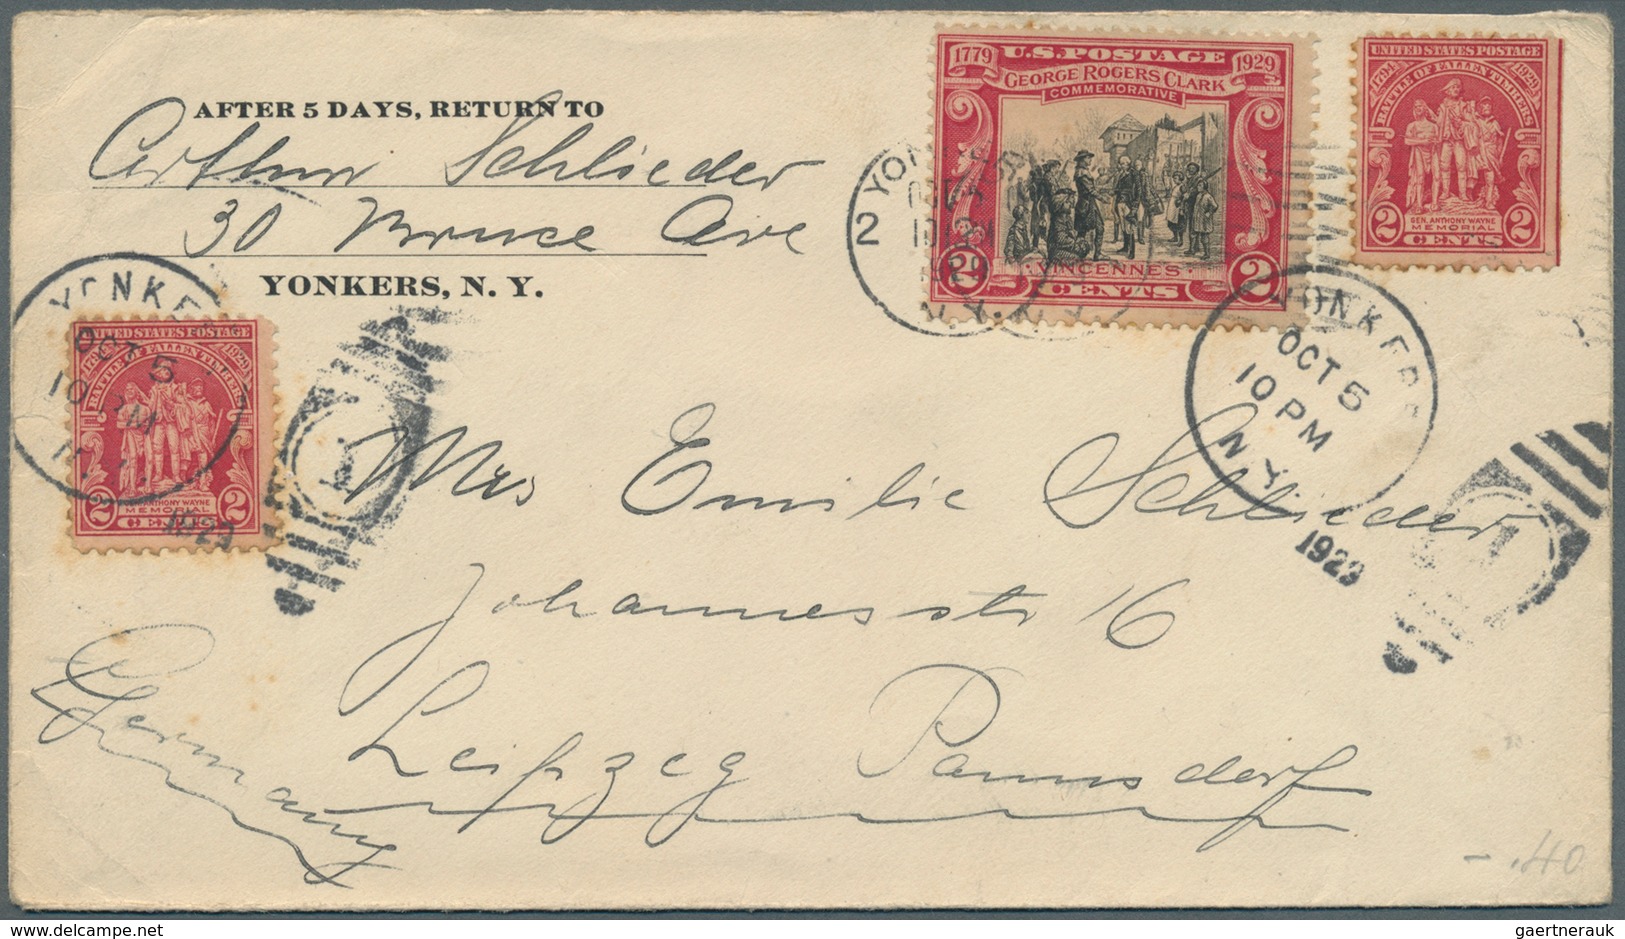 AFTER 5 DAYS, RETURN TO
Arthur Schlieder
30 Bruce Ave
YONKERS, N. Y.
1779 U.S. POSTAGE 1929
GEORGE ROGERS CLARK
COMMEMORATIVE
VINCENNES
2 CENTS 2
UNITED STATES POSTAGE
1794 BATTLE OF FALLEN TIMBERS 1929
GEN. ANTHONY WAYNE
MEMORIAL
2 CENTS 2
2 YONKERS
N.Y.
YONKERS
OCT 5
10 PM
N.Y.
1929
UNITED STATES POSTAGE
1794 BATTLE OF FALLEN TIMBERS 1929
ANTHONY WAYNE
MEMORIAL
2 CENTS 2
YONKE
OCT 5
10 PM
N.Y.
1929
1
Mrs Emilie Schlieder
Johannesstr 16
Leipzeg Paunsdorf
Germany
-.40
gaertnerauk